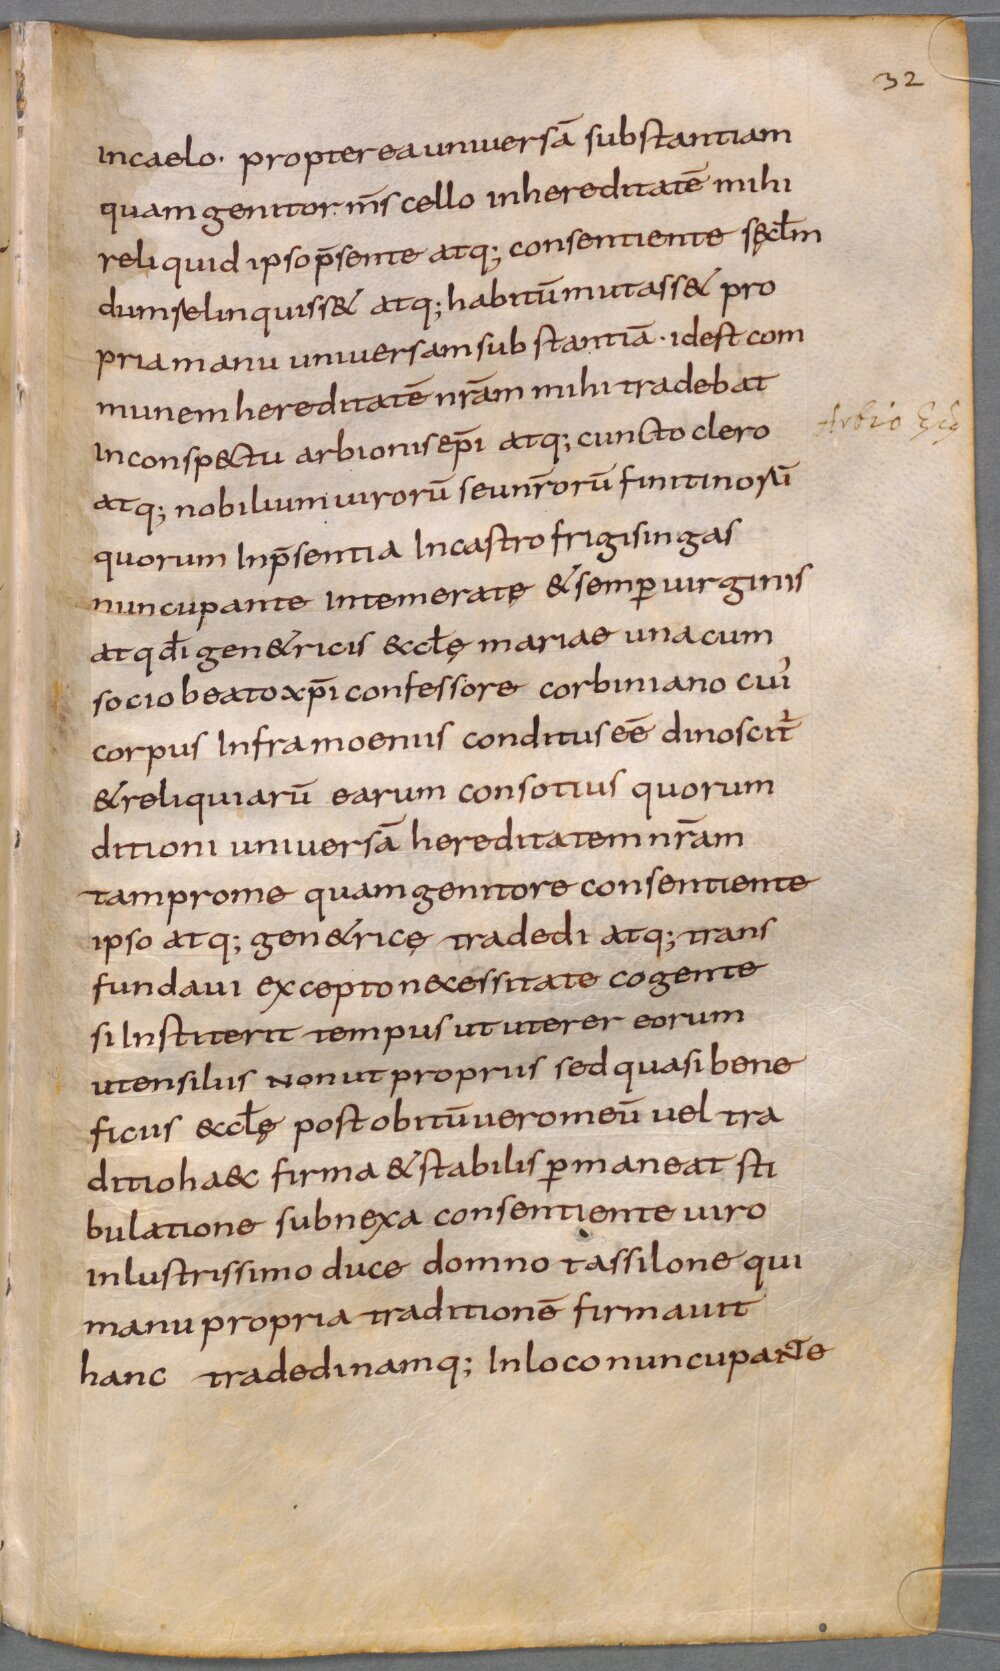 32
incaelo· propterea uniuersā substantiam
quam genitor m̄s cello inhereditatē mihi
reliquid ipso p̄sente atq; consentiente sęcl̄m
dum relinquiss& atq; habitū mutass& pro
pria manu uniuersam substantiā· idest com
munem hereditatē nr̄am mihi tradebat
In conspectu arbionis ep̄i atq; cuncto clero
atq; nobilium uirorū seu nr̄orū finitimorū
quorum In p̄sentia In castro frigisingas
nuncupante intemeratę & semp uirginis
atq dī gen&ricis eccl̄ę mariae una cum
socio beato xp̄i confessore corbiniano cui
corpus Infra moenus conditus eē dinoscit
& reliquiarū earum consotius quorum
ditioni uniuersā hereditatem nr̄am
tam pro me quam genitore consentiente
ipso atq; gen&ricę tradedi atq; trans
fundaui excepto necessitate cogente
si Institerit tempus ut uterer eorum
utensilus Non ut proprus sed quasi bene
ficus eccl̄ę post obitū uero meū uel tra
ditio haec firma & stabilis pmaneat sti
bulatione subnexa consentiente uiro
inlustrissimo duce domno tassilone qui
manu propria traditionē firmauit
hanc tradedi namq; In loco nuncupante
Arbio